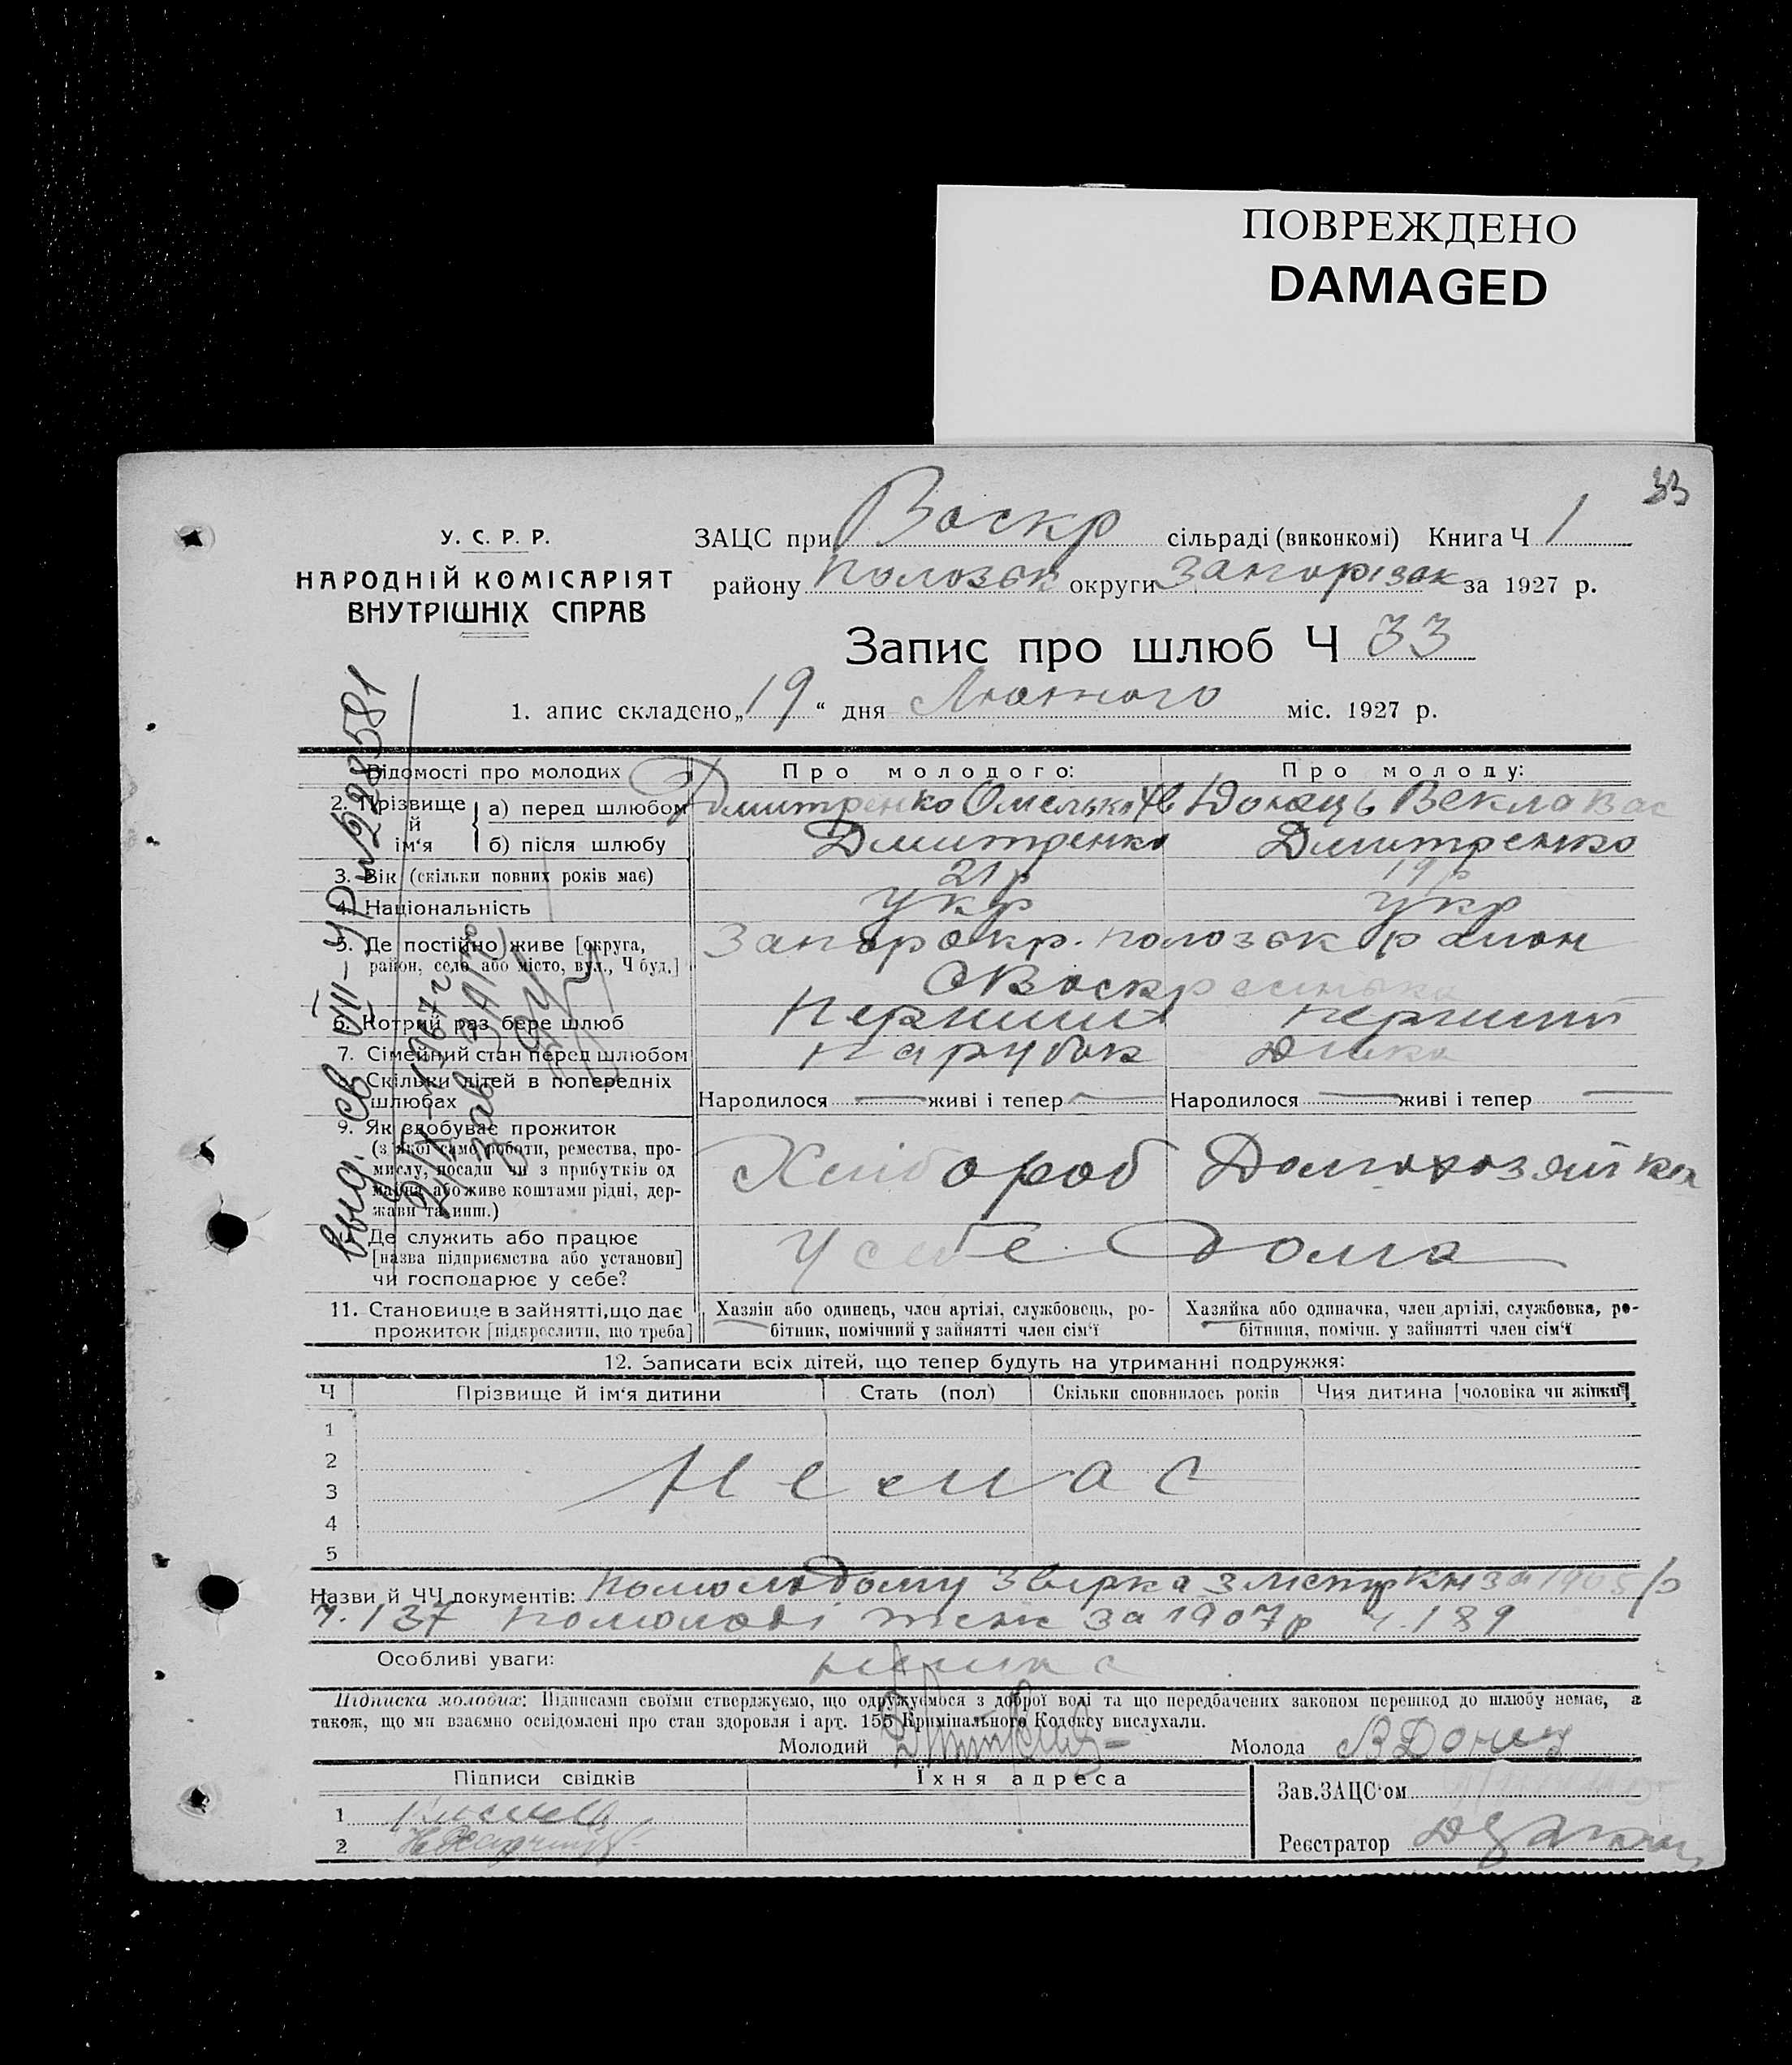 ПОВРЕЖДЕНО
DAMAGED
33
У. С. Р. Р.
НАРОДНІЙ КОМІСАРІЯТ
ВНУТРІШНІХ СПРАВ
ЗАЦС при Воскр сільраді (виконкомі) Книга Ч 1
району Полозьк округи Запорізьк за 1927 р.
Запис про шлюб Ч 33
1. апис складено „19“ дня Лютого міс. 1927 р.
Відомості про молодих Про молодого: Про молоду:
2. Прізвище й ім‘я а) перед шлюбом Дмитренко Омелько Донець Векла Вас
б) після шлюбу Дмитренко Дмитренко
3. Вік (скільки повних років має) 21 р 19 р
4. Національність Укр Укр
5. Де постійно живе [округа, район, село або місто, вул., Ч буд.] Запорокр. Полозьк район
С Воскресенька
6. Котрий раз бере шлюб Перший Перший
7. Сімейний стан перед шлюбом Парубок Дівка
Скільки дітей в попередніх шлюбах Народилося — живі і тепер — Народилося — живі і тепер —
9. Як здобуває прожиток
(з якої само роботи, ремества, промислу, посади чи з прибутків од майна або живе коштами рідні, держави та инш.) Хлібороб Домохозяйка
Де служить або працює
[назва підприємства або установи]
чи господарює у себе? У себе дома
11. Становище в зайнятті, що дає прожиток [підкреслити, що треба] Хазяїн або одинець, член артілі, службовець, робітник, помічний у зайнятті член сім‘ї Хазяйка або одиначка, член артілі, службовка, робітниця, помічн. у зайнятті член сім‘ї
12. Записати всіх дітей, що тепер будуть на утриманні подружжя:
Ч Прізвище й ім‘я дитини Стать (пол) Скільки сповнилось років Чия дитина [чоловіка чи жінки]
1
2
3
4
5
Немає
Назви й ЧЧ документів: По молодому звірка з метр кн за 1905 р
ч. 137 по молоді теж за 1907 р ч. 189
Особливі уваги: немає
Підписка молодих: Підписами своїми стверджуємо, що одружуємося з доброї волі та що передбачених законом перешкод до шлюбу немає, а
також, що ми взаємно освідомлені про стан здоровля і арт. 155 Кримінального Кодексу вислухали.
Молодий Молода В Донец
Підписи свідків Їхня адреса
Зав. ЗАЦС‘ом
1
2
Реєстратор
выд. св VIII-УР №228581
1967 г
Зав ЗАГС